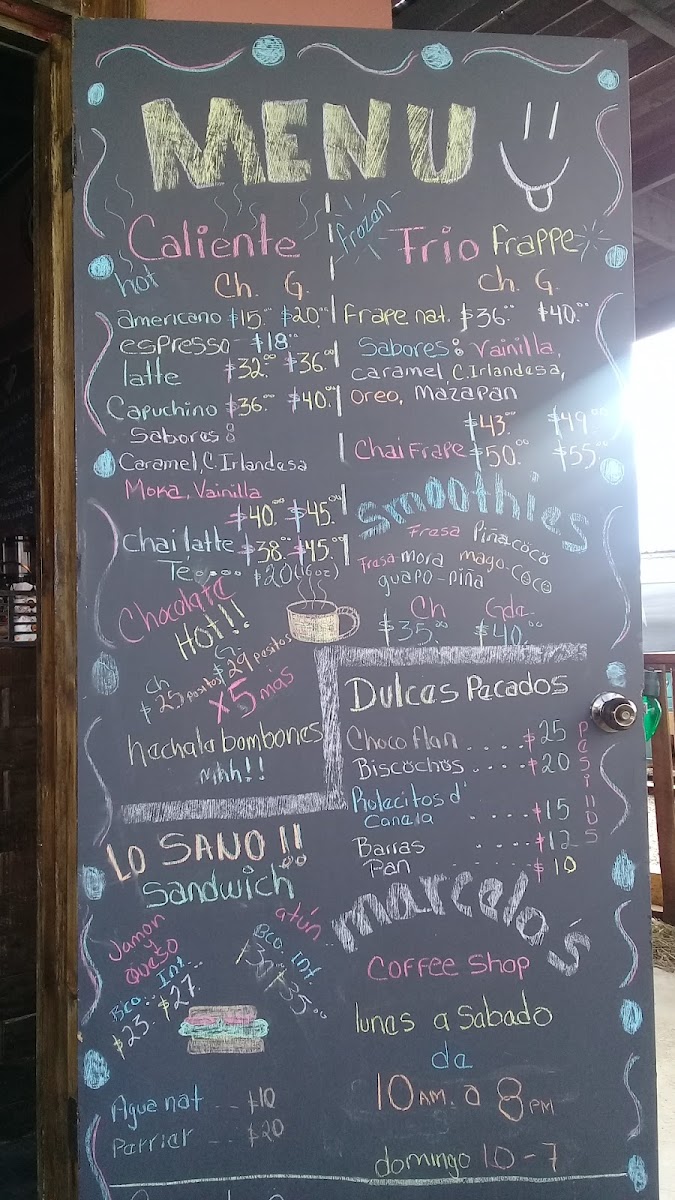 MENU
Caliente
hot
Ch. G.
americano $15.00 $20.00
espresso - $18.00
latte $32.00 $36.00
Capuchino $36.00 $40.00
Sabores:
Caramel, C. Irlandesa
Moka, Vainilla
$40.00 $45.00
chai latte $38.00 $45.00
Te.... $20.00 (16 oz)
Chocolate
HOT!!
Ch G.
$25 pesitos $29 pesitos
x5 mas
hechale bombones
mhh!!
frozen
Frio Frappe
Ch. G.
Frape nat. $36.00 $40.00
Sabores: Vainilla,
caramel, C. Irlandesa,
Oreo, Mazapan
$43.00 $49.00
Chai Frape $50.00 $55.00
Smoothies
Fresa Piña-coco
Fresa-mora mago-coco
guapo-piña
Ch Gde.
$35.00 $40.00
Dulces Pecados
Choco flan .... $25
Biscochos .... $20
Rolecitos d'
Canela $15
Barras $12
Pan $10
PESITOS
LO SANO!!
Sandwich
Jamon
y
queso
Bco. Int...
$23. $27.
atún..
Bco. Int.
$30.00 $35.00
Agua nat -- $10
Perrier -- $20
marcelo's
Coffee Shop
lunes a Sabado
de
10 AM. a 8 PM
domingo 10-7